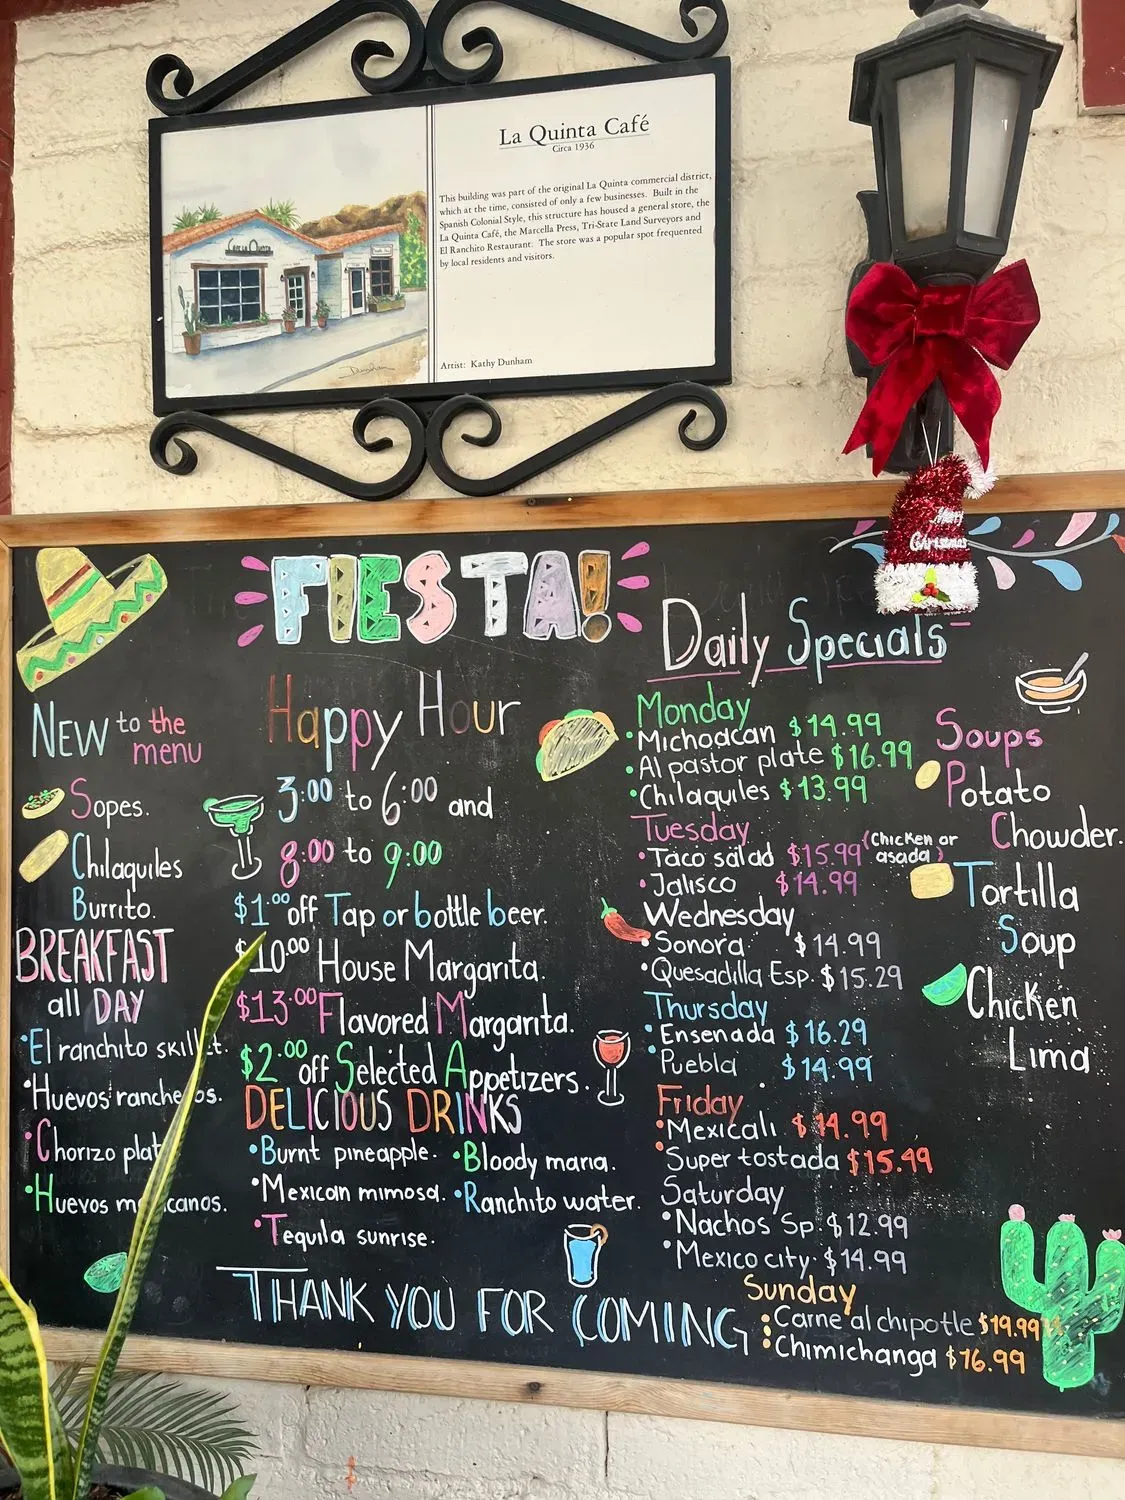 La Quinta Café
Circa 1936
This building was part of the original La Quinta commercial district,
which at the time, consisted of only a few businesses. Built in the
Spanish Colonial Style, this structure has housed a general store, the
La Quinta Café, the Marcella Press, Tri-State Land Surveyors and
El Ranchito Restaurant. The store was a popular spot frequented
by local residents and visitors.
Artist: Kathy Dunham
Merry
Christmas
FIESTA!
NEW to the
menu
Sopes.
Chilaquiles
Burrito.
BREAKFAST
all DAY
•El ranchito skillet.
•Huevos rancheros.
•Chorizo plat
•Huevos mexicanos.
Happy Hour
3:00 to 6:00 and
8:00 to 9:00
$1.00 off Tap or bottle beer.
$10.00 House Margarita.
$13.00 Flavored Margarita.
$2.00 off Selected Appetizers.
DELICIOUS DRINKS
•Burnt pineapple. •Bloody maria.
•Mexican mimosa. •Ranchito water.
•Tequila sunrise.
THANK YOU FOR COMING
Daily Specials
Monday
•Michoacan $14.99
•Al pastor plate $16.99
•Chilaquiles $13.99
Tuesday
•Taco salad $15.99 (Chicken or
asada)
•Jalisco $14.99
Wednesday
•Sonora $14.99
•Quesadilla Esp. $15.29
Thursday
•Ensenada $16.29
•Puebla $14.99
Friday
•Mexicali $14.99
•Super tostada $15.49
Saturday
•Nachos Sp. $12.99
•Mexico city. $14.99
Sunday
•Carne al chipotle $19.99
•Chimichanga $16.99
Soups
Potato
Chowder.
Tortilla
Soup
Chicken
Lima